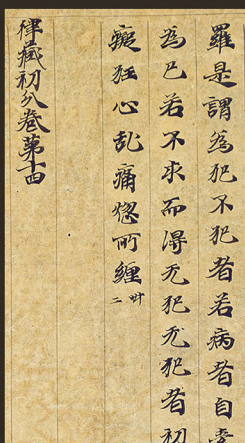 羅是謂為犯不犯者若病者自
為己若不求而得无犯无犯者初
癡狂心乱痛惱所纏 二 卅
律藏初分卷第十四